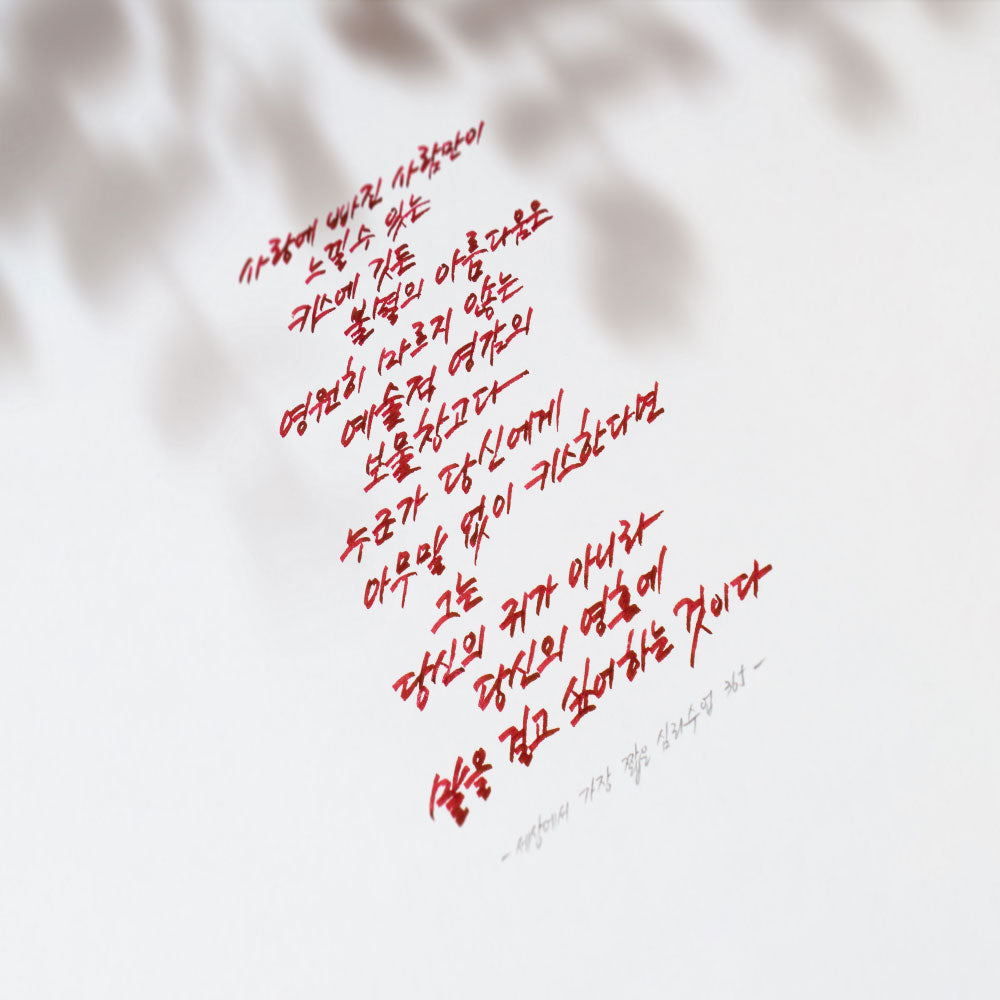 사랑에 빠진 사람만이
느낄 수 있는
키스에 깃든
불멸의 아름다움은
영원히 마르지 않는
예술적 영감의
보물창고다
누군가 당신에게
아무말 없이 키스한다면
그는
당신의 귀가 아니라
당신의 영혼에
말을 걸고 싶어하는 것이다
- 세상에서 가장 짧은 심리수업 365 -